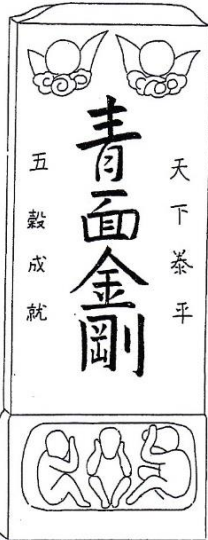 天下泰平
青面金剛
五穀成就